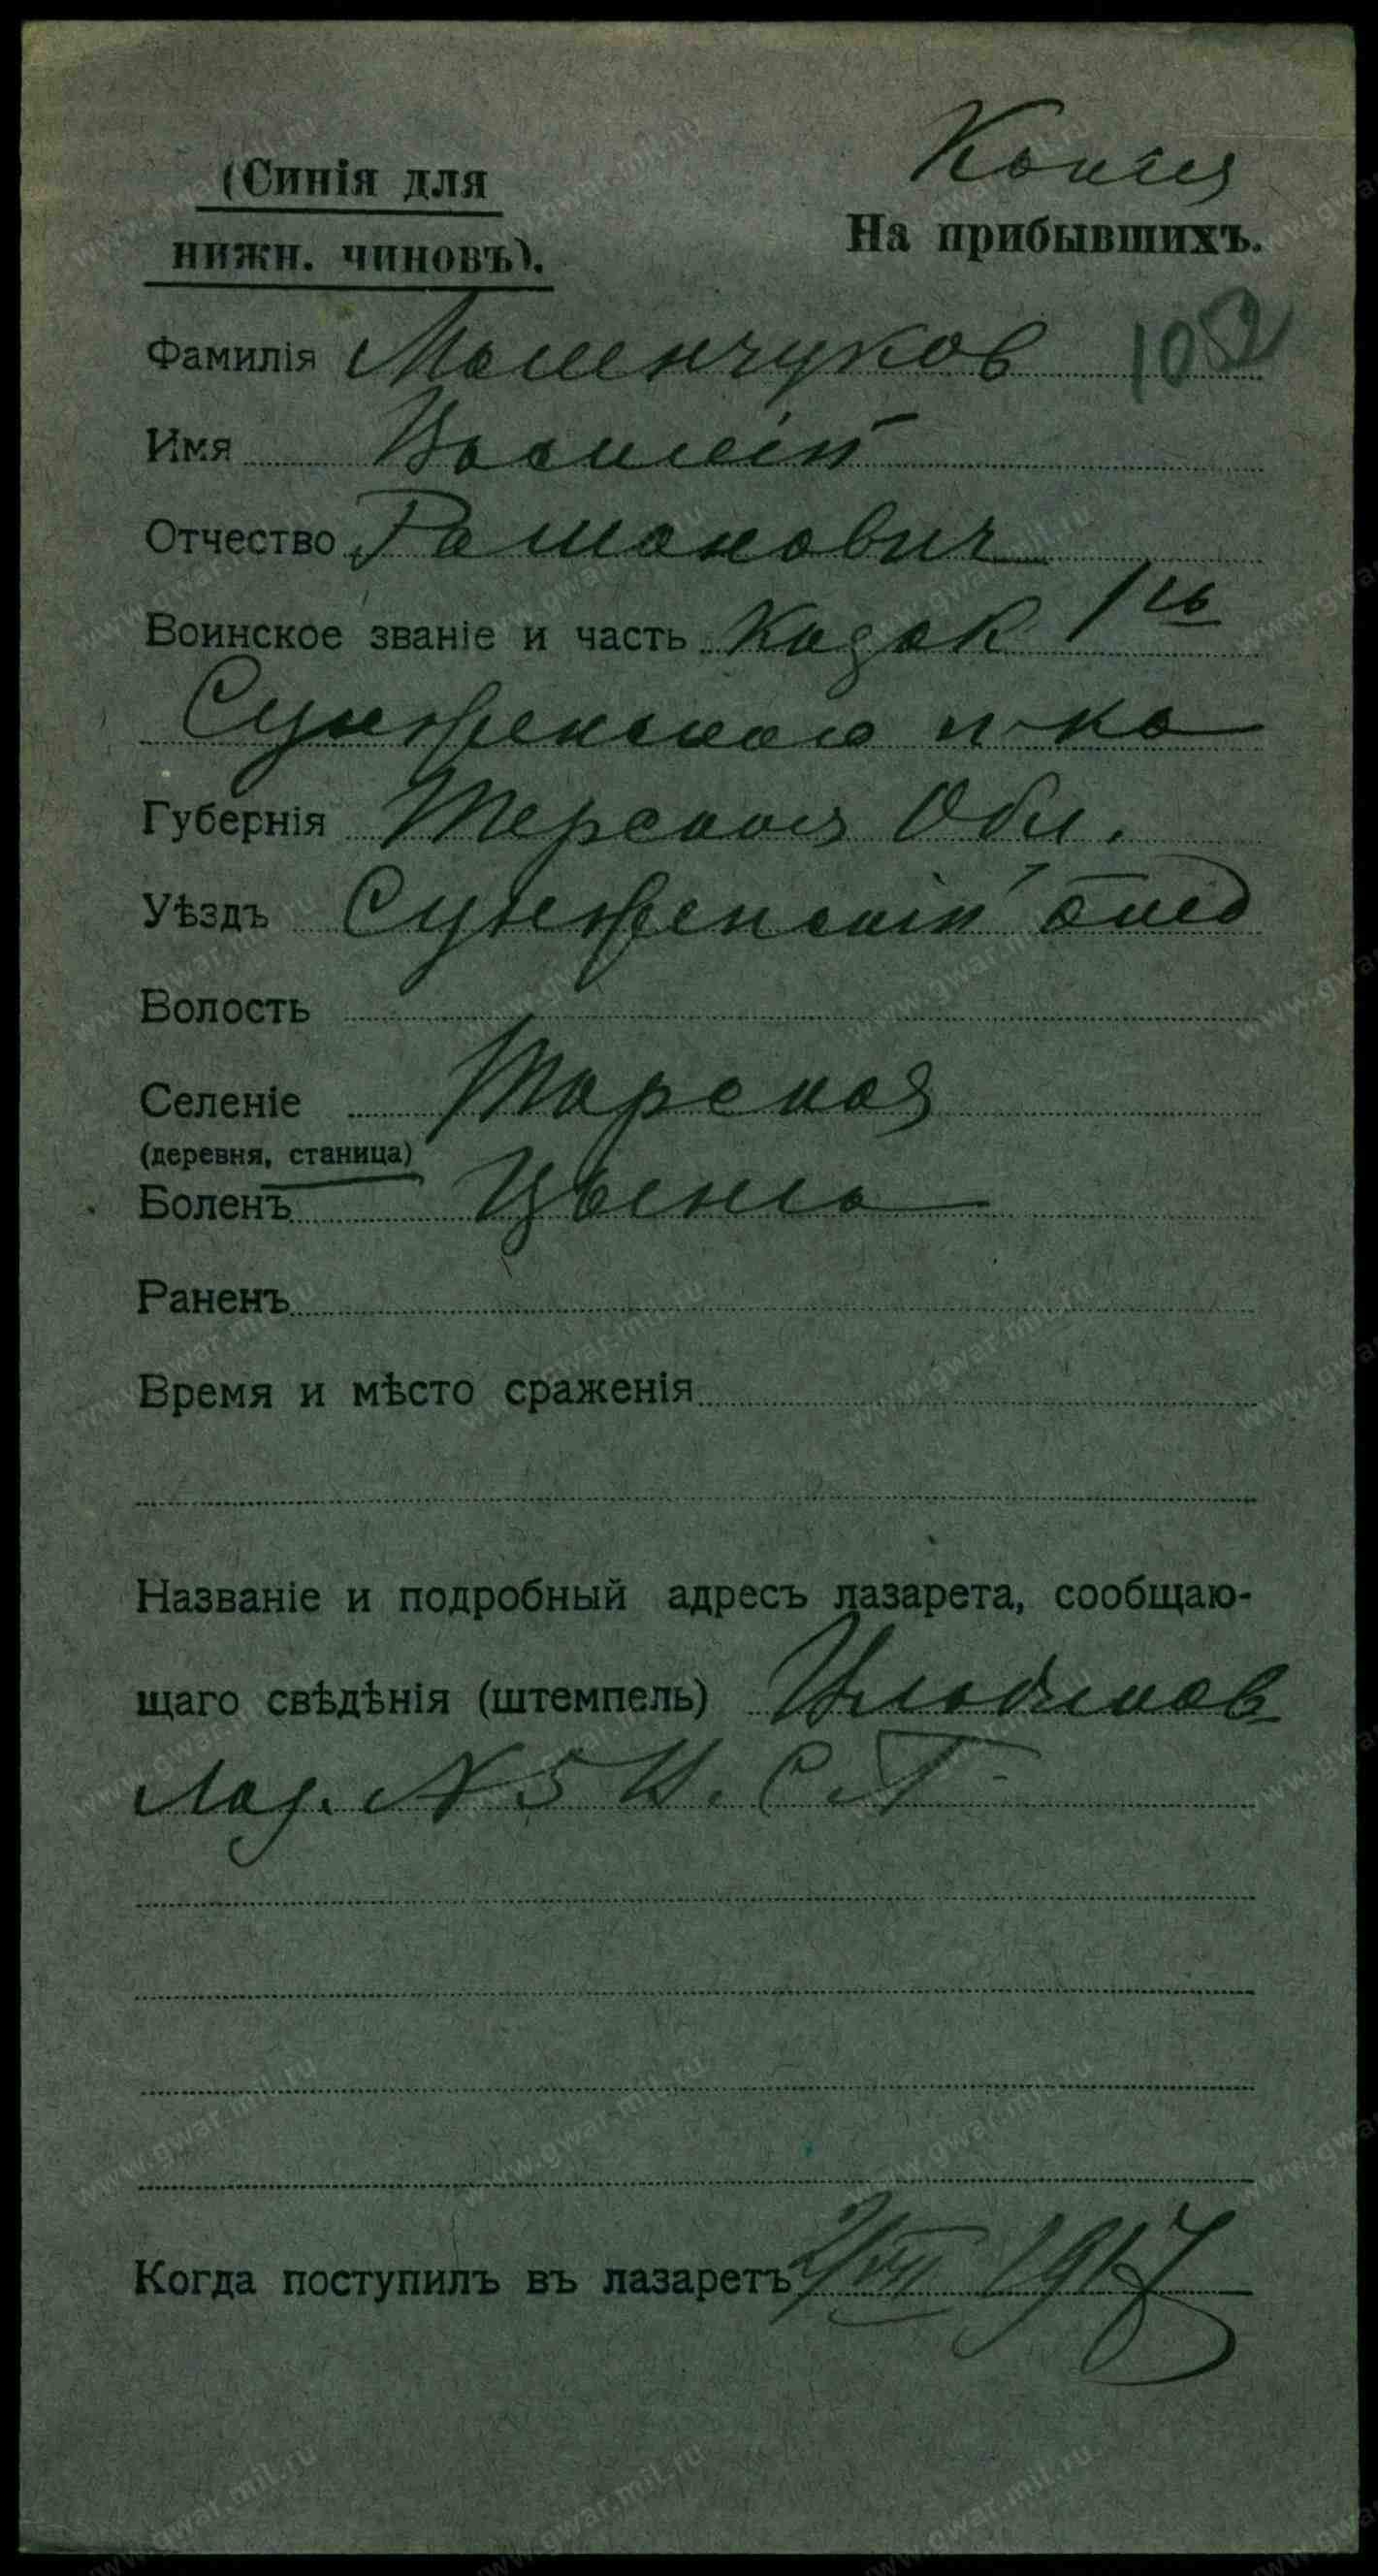 Копия
(Синія для
нижн. чиновъ).
На прибывшихъ.
Фамилія Моменчуков 102
Имя Василій
Отчество Рамонович
Воинское званіе и часть Казак 1го
Сунженского п-ка
Губернія Терская Обл.
Уѣздъ Сунженскій отд
Волость
Селеніе Тарская
(деревня, станица)
Боленъ Цынга
Раненъ
Время и мѣсто сраженія
Названіе и подробный адресъ лазарета, сообщаю-
щаго свѣдѣнія (штемпель)
Лаз. N 5
Когда поступилъ въ лазаретъ 2/VII 1917
www.gwar.mil.ru